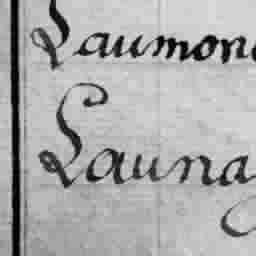 Laumon
Launay